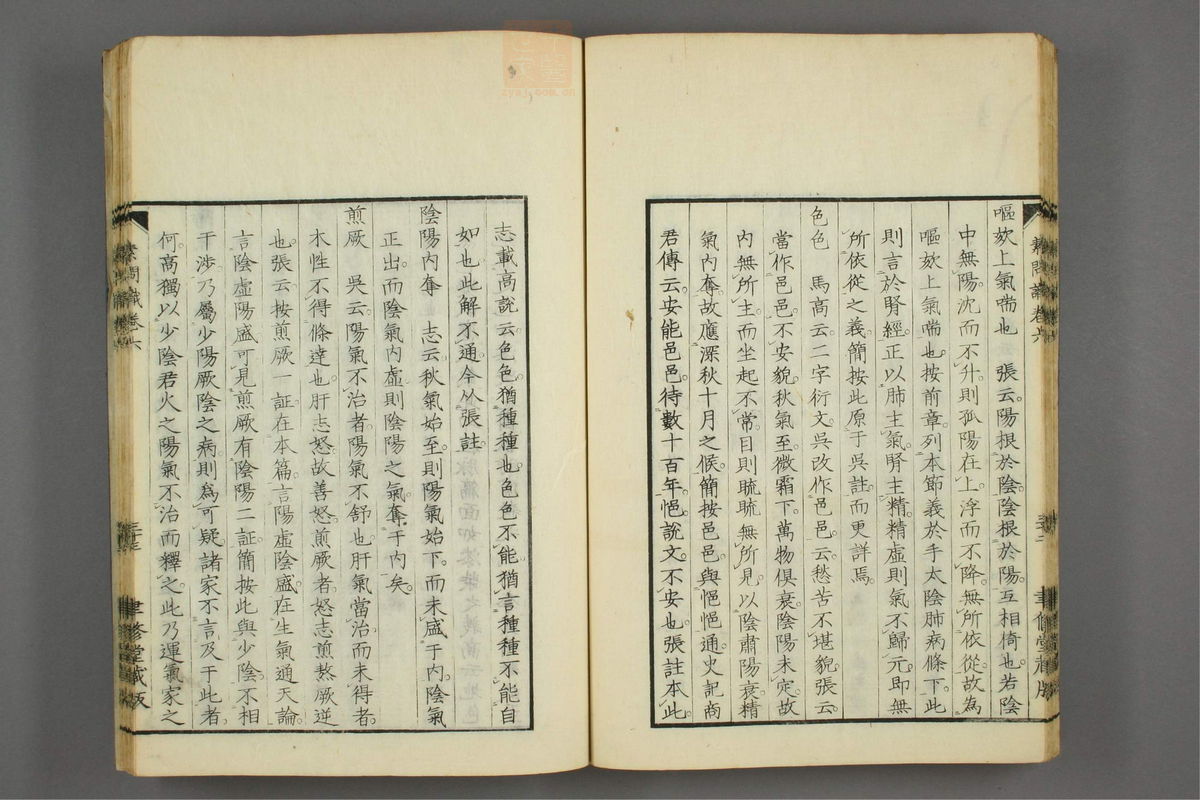 嘔欬上氣喘也　張云陽根於陰陰根於陽互相倚也若陰
中無陽沈而不升則孤陽在上浮而不降無所依從故為
嘔欬上氣喘也按前章列本節義於手太陰肺病條下此
則言於腎經正以肺主氣腎主精精虛則氣不歸元即無
所依從之義簡按此原于吳註而更詳焉
色色　馬高云二字衍文吳改作邑邑云愁苦不堪貌張云
當作邑邑不安貌秋氣至微霜下萬物俱衰陰陽未定故
內無所主而坐起不常目則䀮䀮無所見以陰肅陽衰精
氣內奪故應深秋十月之候簡按邑邑與悒悒通史記商
君傳云安能邑邑待數十百年悒說文不安也張註本此
志載高說云色色猶種種也色色不能猶言種種不能自
如也此解不通今从張註
陰陽內奪　志云秋氣始至則陽氣始下而未盛于內陰氣
正出而陰氣內虛則陰陽之氣奪于內矣
煎厥　吳云陽氣不治者陽氣不舒也肝氣當治而未得者
木性不得條達也肝志怒故善怒煎厥者怒志煎熬厥逆
也張云按煎厥一証在本篇言陽虛陰盛在生氣通天論
言陰虛陽盛可見煎厥有陰陽二証簡按此與少陰不相
干涉乃屬少陽厥陰之病則為可疑諸家不言及于此者
何高獨以少陰君火之陽氣不治而釋之此乃運氣家之
素問識卷六
聿修堂藏版